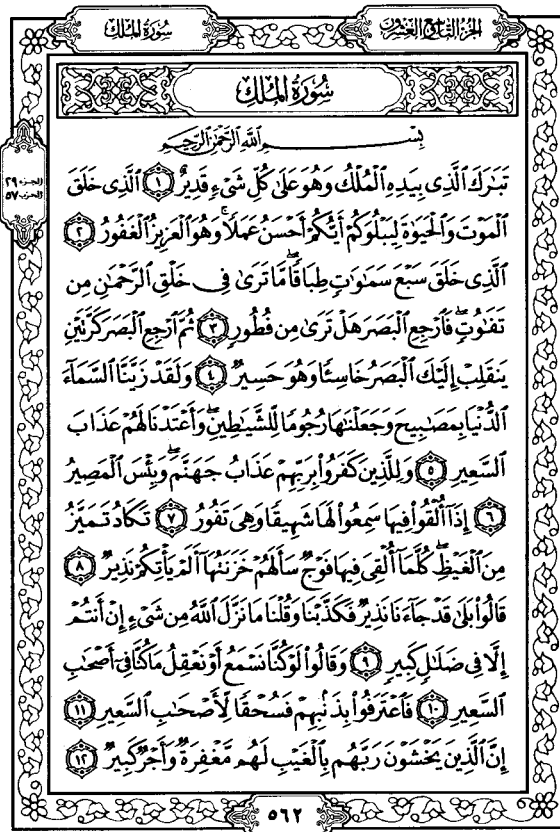 الجزء التاسع والعشرون
سُورَةُ المُلك
سُورَةُ المُلك
الجزء ٢٩
الحزب ٥٧
بِسْمِ اللَّهِ الرَّحْمَٰنِ الرَّحِيمِ
تَبَٰرَكَ ٱلَّذِى بِيَدِهِ ٱلْمُلْكُ وَهُوَ عَلَىٰ كُلِّ شَىْءٍ قَدِيرٌ ١ ٱلَّذِى خَلَقَ
ٱلْمَوْتَ وَٱلْحَيَوٰةَ لِيَبْلُوَكُمْ أَيُّكُمْ أَحْسَنُ عَمَلًا ۚ وَهُوَ ٱلْعَزِيزُ ٱلْغَفُورُ ٢
ٱلَّذِى خَلَقَ سَبْعَ سَمَٰوَٰتٍ طِبَاقًا ۖ مَّا تَرَىٰ فِى خَلْقِ ٱلرَّحْمَٰنِ مِن
تَفَٰوُتٍ ۖ فَٱرْجِعِ ٱلْبَصَرَ هَلْ تَرَىٰ مِن فُطُورٍ ٣ ثُمَّ ٱرْجِعِ ٱلْبَصَرَ كَرَّتَيْنِ
يَنقَلِبْ إِلَيْكَ ٱلْبَصَرُ خَاسِئًا وَهُوَ حَسِيرٌ ٤ وَلَقَدْ زَيَّنَّا ٱلسَّمَآءَ
ٱلدُّنْيَا بِمَصَٰبِيحَ وَجَعَلْنَٰهَا رُجُومًا لِّلشَّيَٰطِينِ ۖ وَأَعْتَدْنَا لَهُمْ عَذَابَ
ٱلسَّعِيرِ ٥ وَلِلَّذِينَ كَفَرُوا۟ بِرَبِّهِمْ عَذَابُ جَهَنَّمَ ۖ وَبِئْسَ ٱلْمَصِيرُ
٦ إِذَآ أُلْقُوا۟ فِيهَا سَمِعُوا۟ لَهَا شَهِيقًا وَهِىَ تَفُورُ ٧ تَكَادُ تَمَيَّزُ
مِنَ ٱلْغَيْظِ ۖ كُلَّمَآ أُلْقِىَ فِيهَا فَوْجٌ سَأَلَهُمْ خَزَنَتُهَآ أَلَمْ يَأْتِكُمْ نَذِيرٌ ٨
قَالُوا۟ بَلَىٰ قَدْ جَآءَنَا نَذِيرٌ فَكَذَّبْنَا وَقُلْنَا مَا نَزَّلَ ٱللَّهُ مِن شَىْءٍ إِنْ أَنتُمْ
إِلَّا فِى ضَلَٰلٍ كَبِيرٍ ٩ وَقَالُوا۟ لَوْ كُنَّا نَسْمَعُ أَوْ نَعْقِلُ مَا كُنَّا فِىٓ أَصْحَٰبِ
ٱلسَّعِيرِ ١٠ فَٱعْتَرَفُوا۟ بِذَنۢبِهِمْ فَسُحْقًا لِّأَصْحَٰبِ ٱلسَّعِيرِ ١١
إِنَّ ٱلَّذِينَ يَخْشَوْنَ رَبَّهُم بِٱلْغَيْبِ لَهُم مَّغْفِرَةٌ وَأَجْرٌ كَبِيرٌ ١٢
٥٦٢